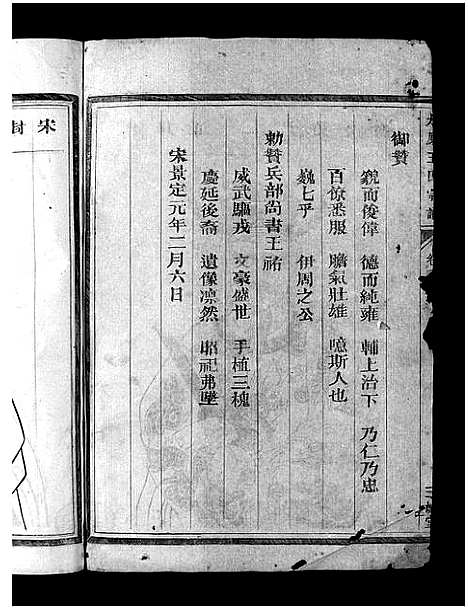 御贊
貌而俊偉 德而純雍 輔上治下 乃仁乃忠
百僚悉服 膽氣壯雄 噫斯人也
巍乎 伊周之公
勅贊兵部尚書王祐
威武驅戎 文豪盛世 手植三槐
慶延後裔 遺像凛然 昭祀弗墜
宋景定元年二月六日
宋封